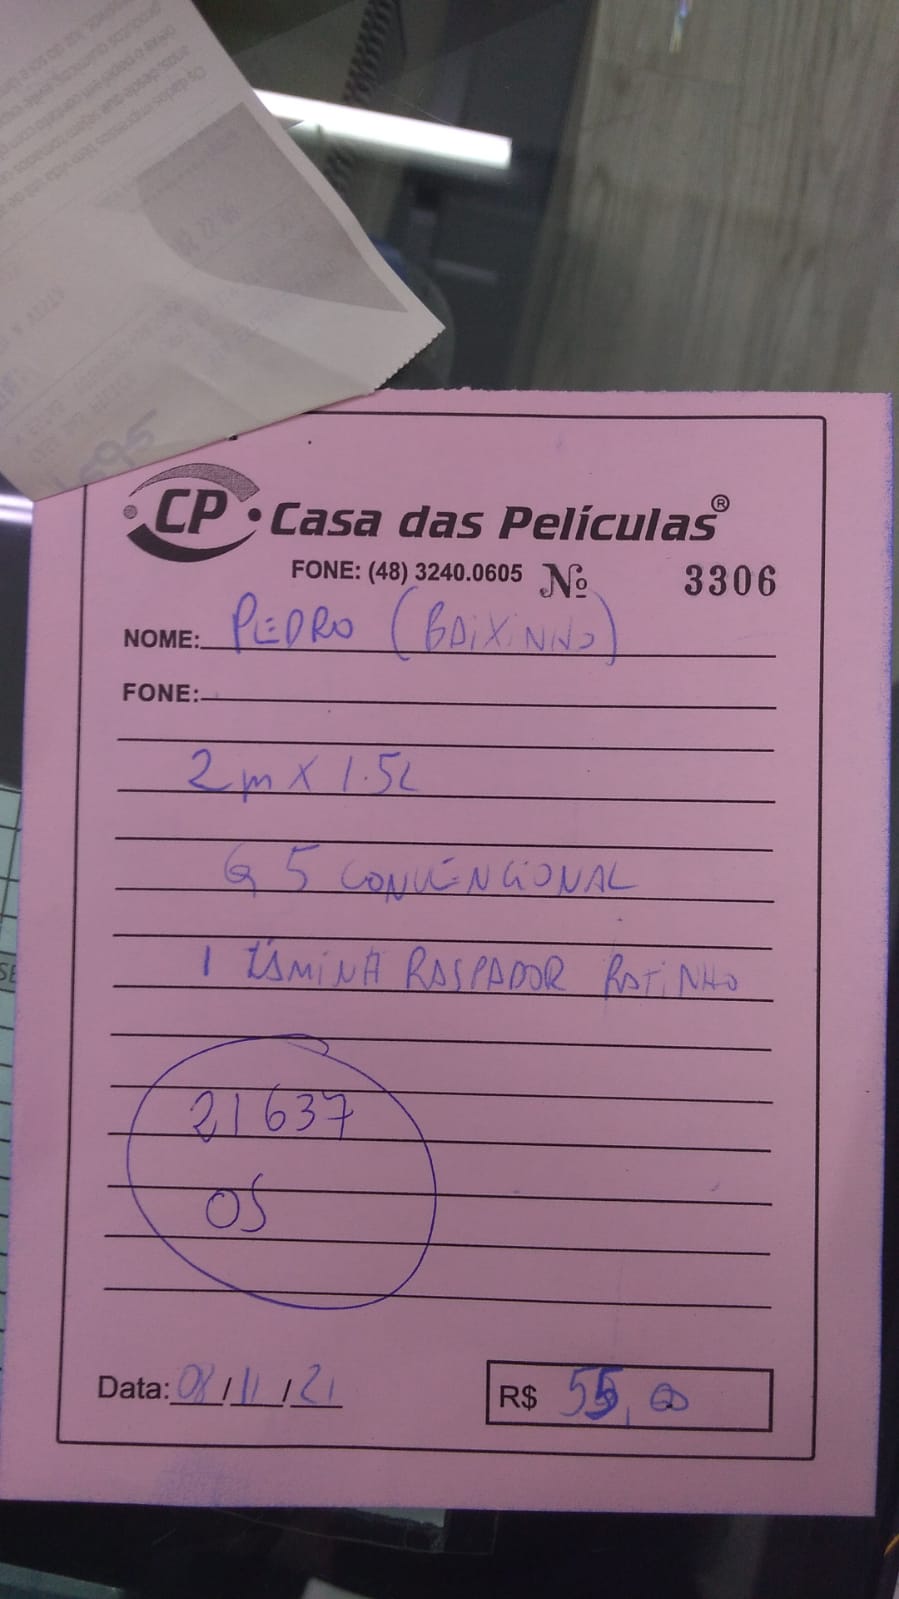 CP Casa das Películas®
FONE: (48) 3240.0605 Nº 3306
NOME: PEDRO (BAIXINHO)
FONE:
2m X 1.52
G 5 CONVENCIONAL
1 LÂMINA RASPADOR RATINHO
21637
OS
Data: 08/11/21
R$ 55,00